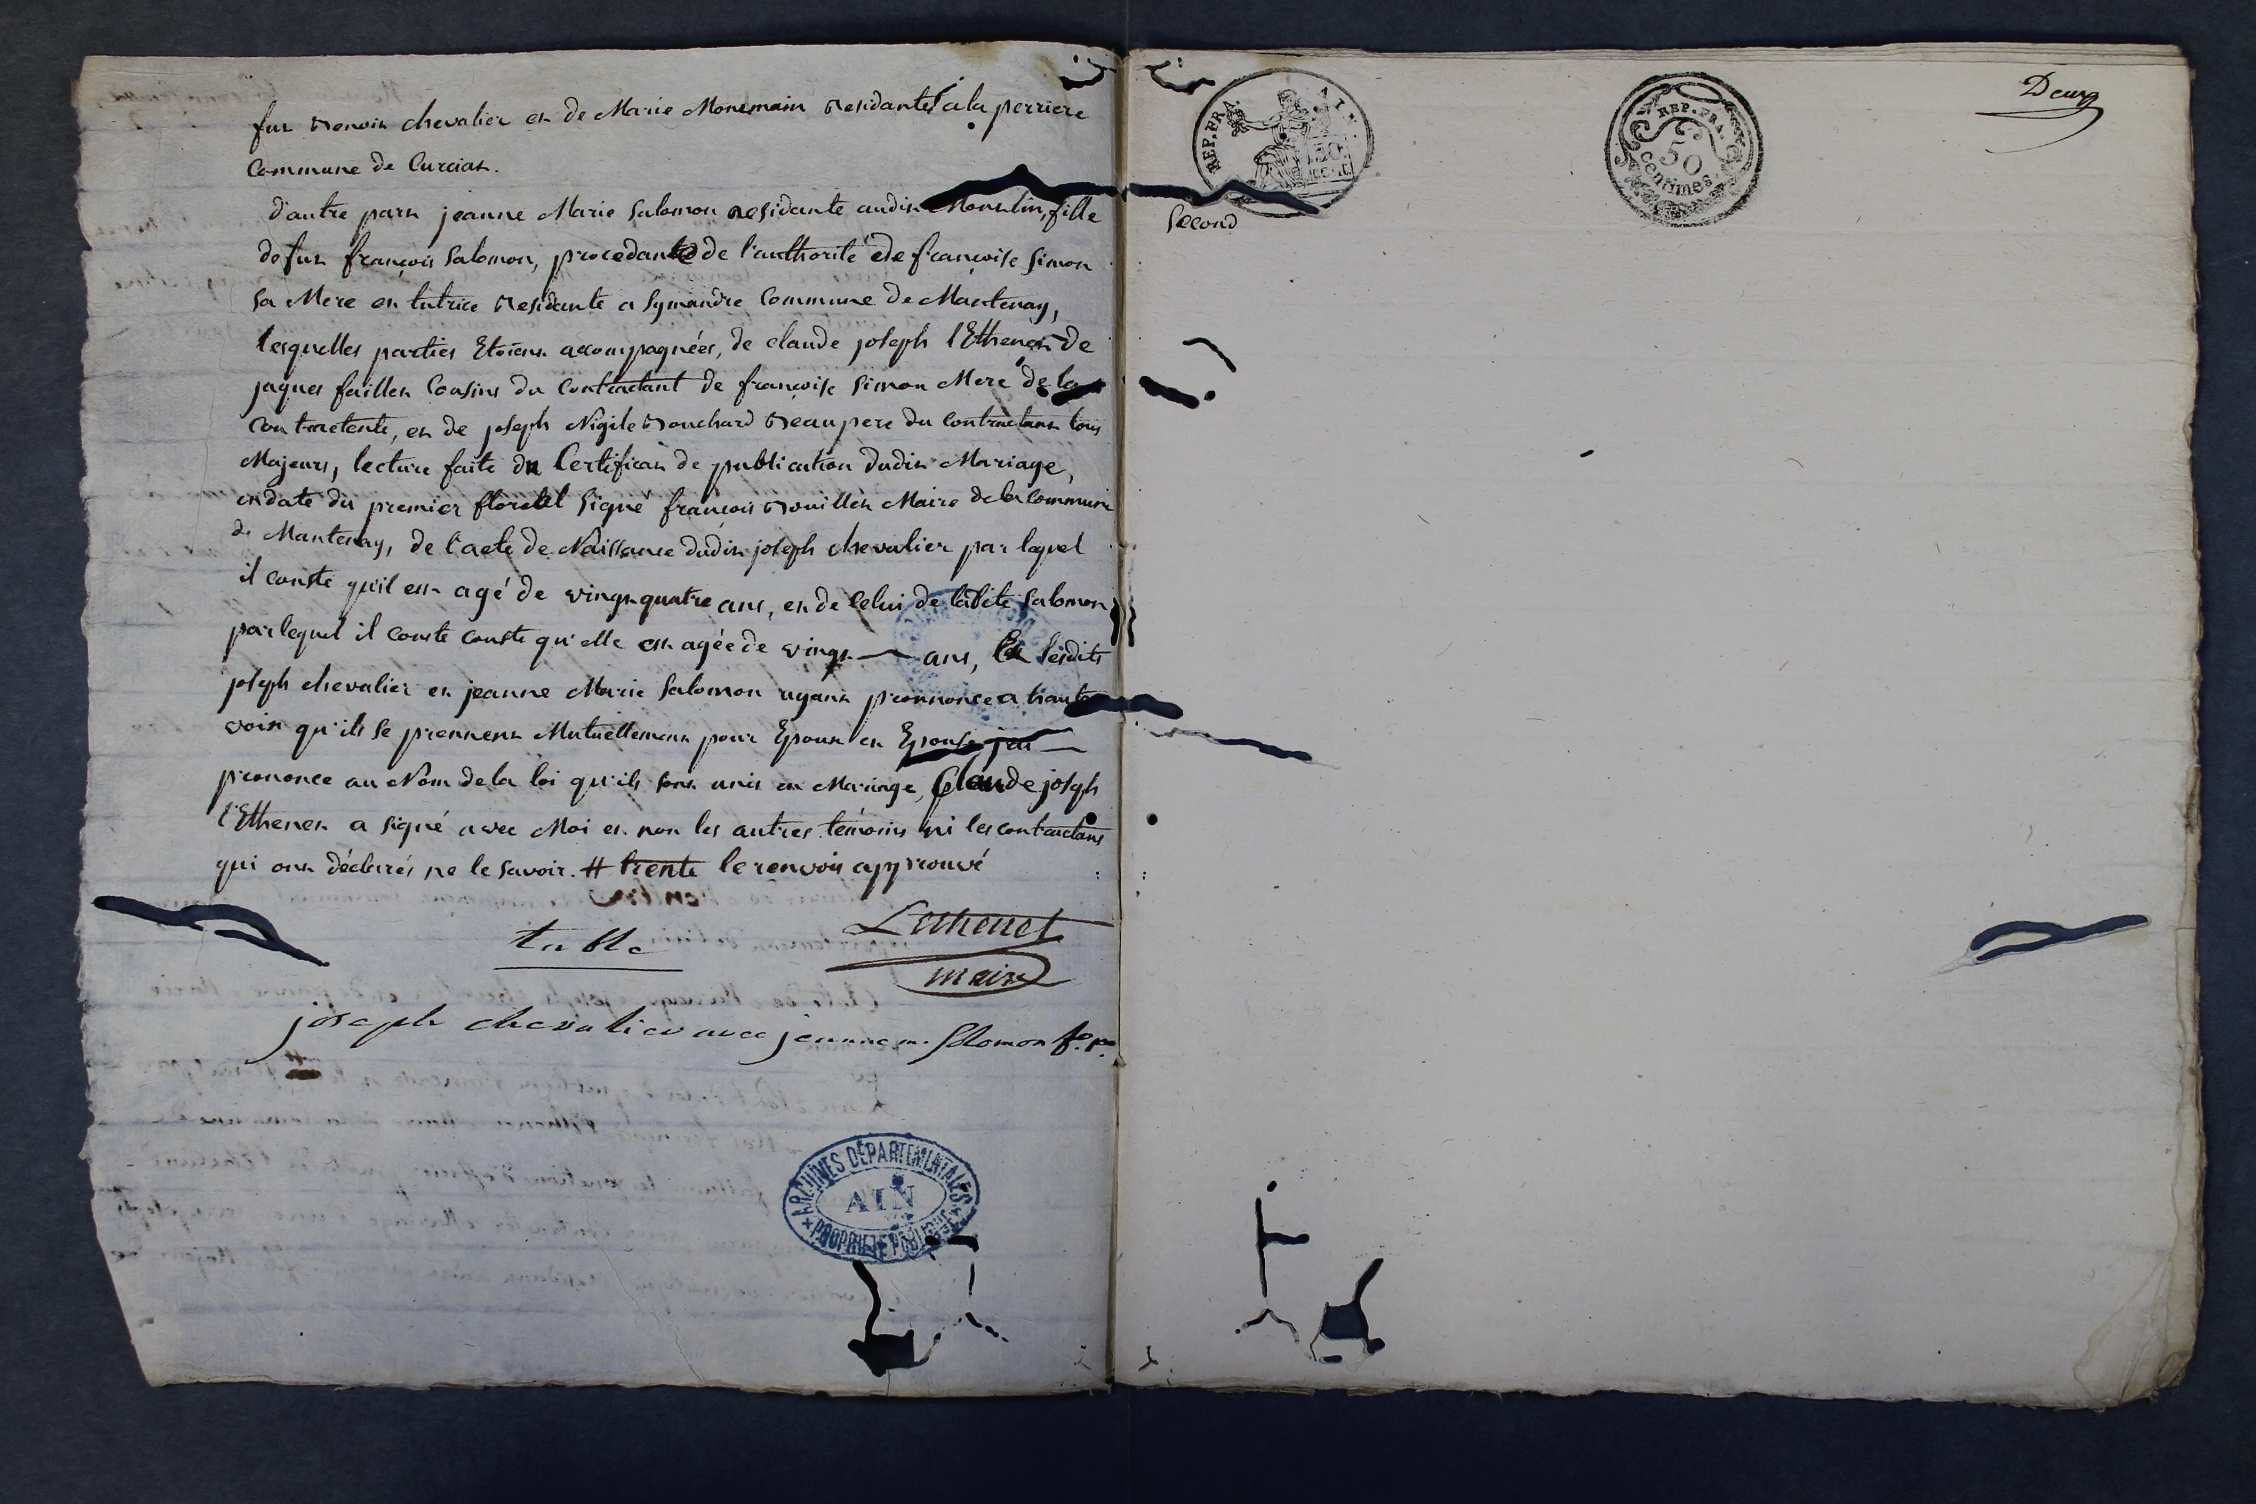 fut Benoit chevalier et de Marie Monemain Residantes a la perriere
Commune de Curciat.
d'autre part jeanne Marie Salomon Residante audit Montlin, fille
de fut françois Salomon, procedante de l'authorité de françoise Simon
sa Mere et tutrice Residante a Symandre Commune de Mantenay,
lesquelles parties Etoient accompagnées, de claude joseph l'Ethenet de
jaques faillet Cousins du Contractant de françoise Simon Mere de la
Contractente, et de joseph Bouchard Beaupere du contractant tous
Majeurs, lecture faite du Certificat de publication dudit Mariage,
en date du premier floreal Signé françois Rouillet Maire de la commune
de Mantenay, de l'acte de Naissance dudit joseph chevalier par lequel
il conste qu'il est agé de vingt quatre ans, et de Celui de ladite Salomon
par lequel il conste conste qu'elle est agée de vingt ans, les dits
joseph chevalier et jeanne Marie Salomon ayant prononcé a haute
voix qu'ils se prennent Mutuellement pour Epoux et Epouse j'ai
prononcé au Nom de la loi qu'ils sont unis en Mariage, Claude joseph
l'Ethenet a signé avec Moi et non les autres témoins ni les contractans
qui ont déclarés ne le savoir. # trente le renvois approuvé
Lethenet
table
maire
joseph chevalier avec jeanne m. Salomon
ARCHIVES DÉPARTEMENTALES
AIN
PROPRIÉTÉ PUBLIQUE
REP. FRA.
Second
REP. FRA.
50
centimes.
Deux